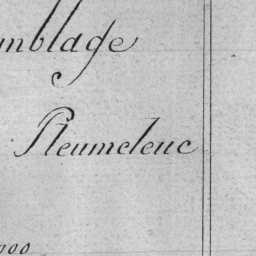 mblage
Pleumeleuc
000